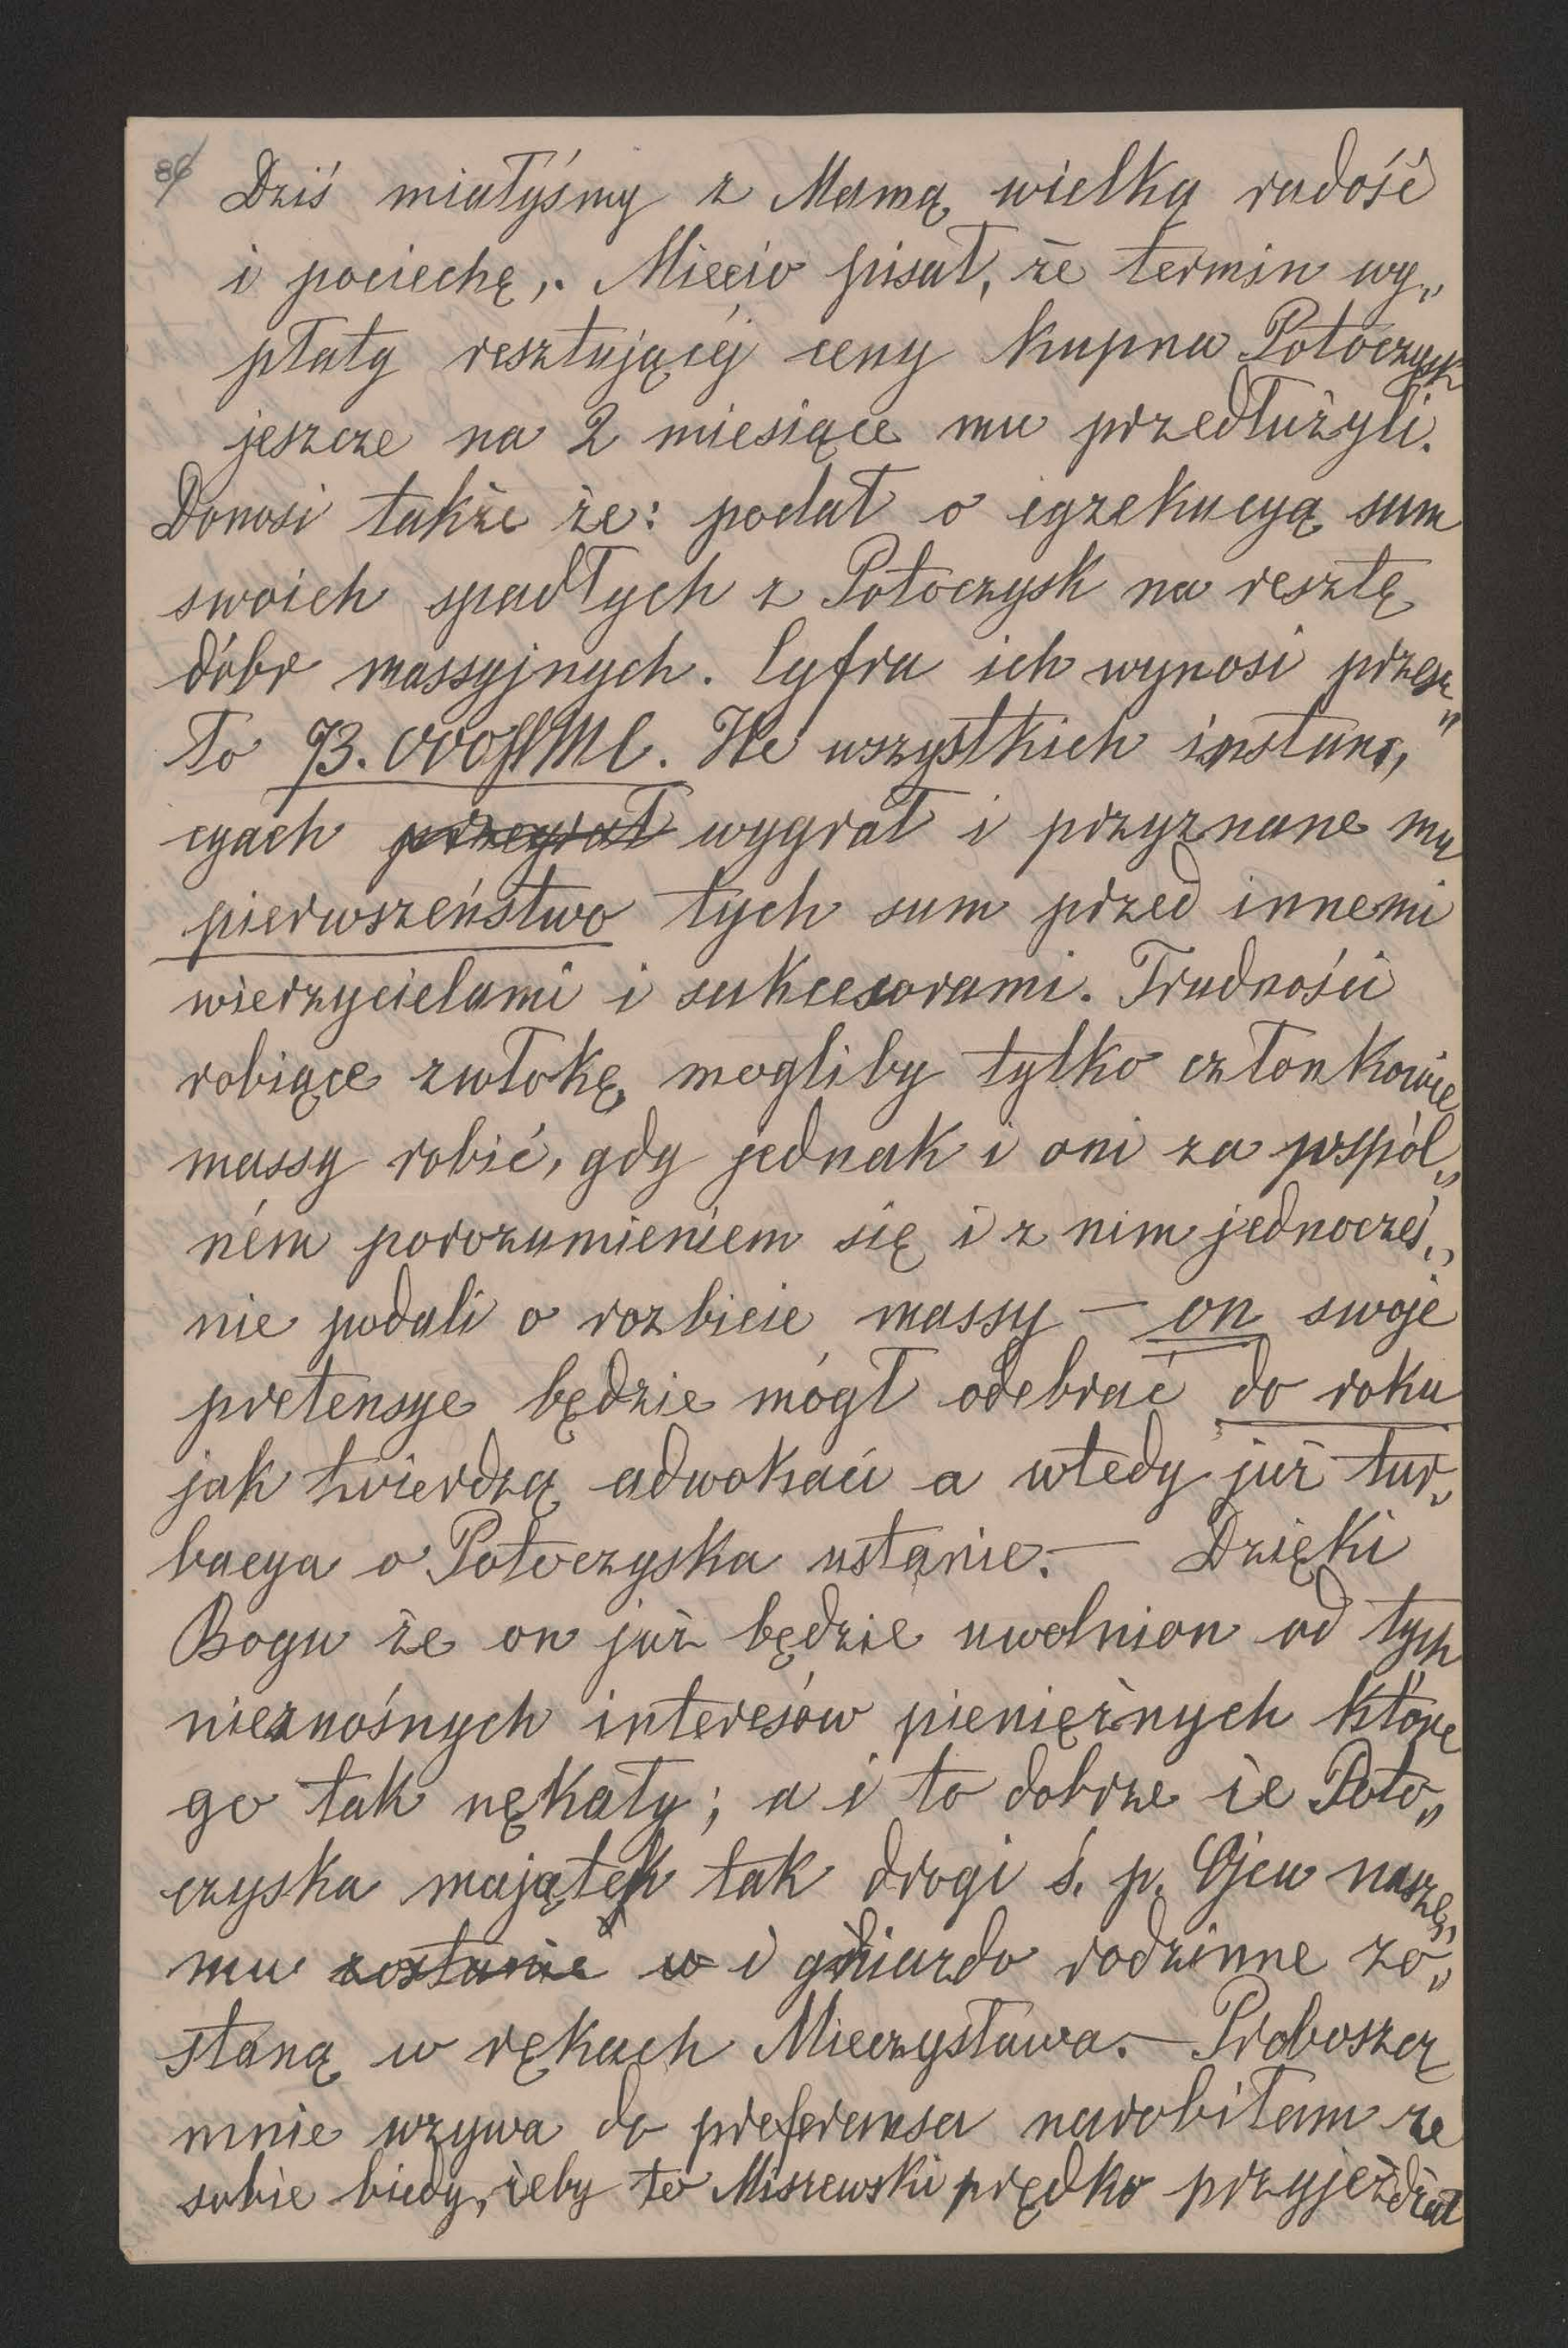 86/
Dziś miałyśmy z Mamą wielką radość
i pociechę,. Miecio pisał, że termin wy„
płaty resztującéj ceny kupna Potoczysk
jeszcze na 2 miesiące mu przedłużyli.
Donosi także że: podał o egzekucyą sum
swoich spadłych z Potoczysk na resztę
dóbr massyjnych. Cyfra ich wynosi przesz„
to 93.000 fl M C. We wszystkich instan„
cyach przegrał wygrał i przyznane mu
pierwszeństwo tych sum przed innemi
wierzycielami i sukcesorami. Trudności
robiące zwłokę, mogliby tylko członkowie
massy robić, gdy jednak i oni za wspól„
ném porozumieniem się i z nim jednocześ„
nie podali o rozbicie massy — on swoje
pretensye będzie mógł odebrać do roku
jak twierdzą adwokaci a wtedy już tur„
bacya o Potoczyska ustanie. — Dzięki
Bogu że on już będzie uwolnion od tych
nieznośnych interesów pieniężnych które
go tak nękały; a i to dobrze że Poto„
czyska majątek tak drogi ś. p. Ojcu nasze„
mu zostanie w i gniazdo rodzinne zo„
staną w rękach Mieczysława. — Proboszcz
mnie wzywa do preferansa narobiłam ze
sobie biedy, żeby to Miszewski prędko przyjeżdżał